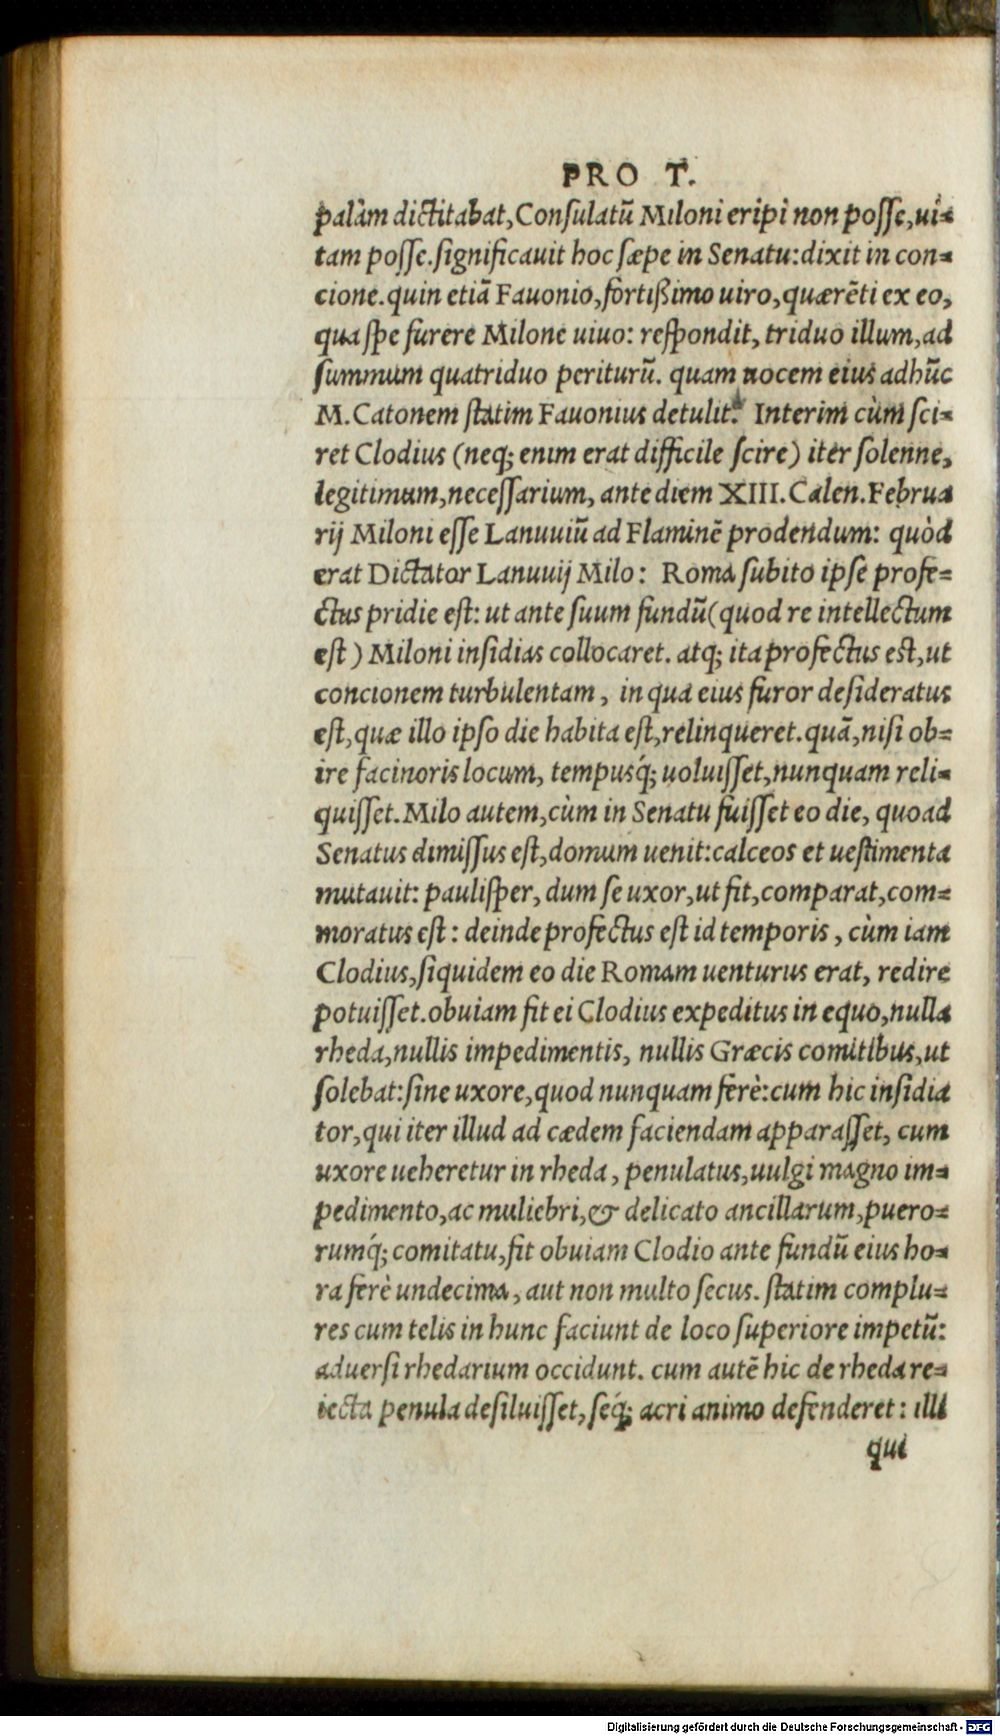 PRO T.
palàm dictitabat, Consulatũ Miloni eripi non posse, ui-
tam posse. significauit hoc sæpe in Senatu: dixit in con-
cione. quin etiã Fauonio, fortißimo uiro, quærẽti ex eo,
qua spe furere Milone uiuo: respondit, triduo illum, ad
summum quatriduo periturũ. quam uocem eius adhũc
M. Catonem statim Fauonius detulit. Interim cùm sci-
ret Clodius (neq; enim erat difficile scire) iter solenne,
legitimum, necessarium, ante diem XIII. Calen. Februa
rij Miloni esse Lanuuiũ ad Flaminẽ prodendum: quòd
erat Dictator Lanuuij Milo: Roma subito ipse profe-
ctus pridie est: ut ante suum fundũ (quod re intellectum
est) Miloni insidias collocaret. atq; ita profectus est, ut
concionem turbulentam, in qua eius furor desideratus
est, quæ illo ipso die habita est, relinqueret. quã, nisi ob-
ire facinoris locum, tempusq́; uoluisset, nunquam reli-
quisset. Milo autem, cùm in Senatu fuisset eo die, quoad
Senatus dimissus est, domum uenit: calceos et uestimenta
mutauit: paulisper, dum se uxor, ut fit, comparat, com-
moratus est: deinde profectus est id temporis, cùm iam
Clodius, siquidem eo die Romam uenturus erat, redire
potuisset. obuiam fit ei Clodius expeditus in equo, nulla
rheda, nullis impedimentis, nullis Græcis comitibus, ut
solebat: sine uxore, quod nunquam ferè: cum hic insidia
tor, qui iter illud ad cædem faciendam apparasset, cum
uxore ueheretur in rheda, penulatus, uulgi magno im-
pedimento, ac muliebri, & delicato ancillarum, puero-
rumq́; comitatu, fit obuiam Clodio ante fundũ eius ho-
ra ferè undecima, aut non multo secus. statim complu-
res cum telis in hunc faciunt de loco superiore impetũ:
aduersi rhedarium occidunt. cum autẽ hic de rheda re-
iecta penula desiluisset, seq́; acri animo defenderet: illi
qui
Digitalisierung gefördert durch die Deutsche Forschungsgemeinschaft - DFG